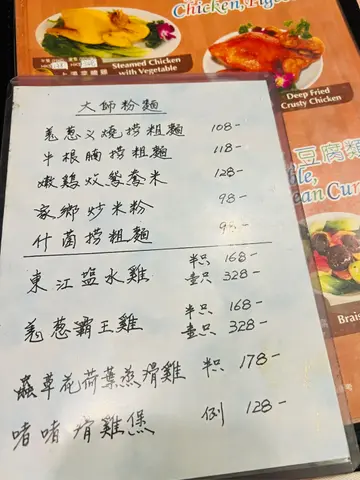 Chicken,
Steamed Chicken
with Vegetable
Deep Fried
Crusty Chicken
豆腐類
大師粉麵
羗葱叉燒撈粗麵 108-
牛根腩撈粗麵 118-
嫩鷄炆鴛鴦米 128-
家鄉炒米粉 98-
什菌撈粗麵 98-
東江鹽水雞 半只 168-
壹只 328-
羗葱霸王雞 半只 168-
壹只 328-
蟲草花荷葉蒸滑雞 半只 178-
啫啫滑雞煲 例 128-